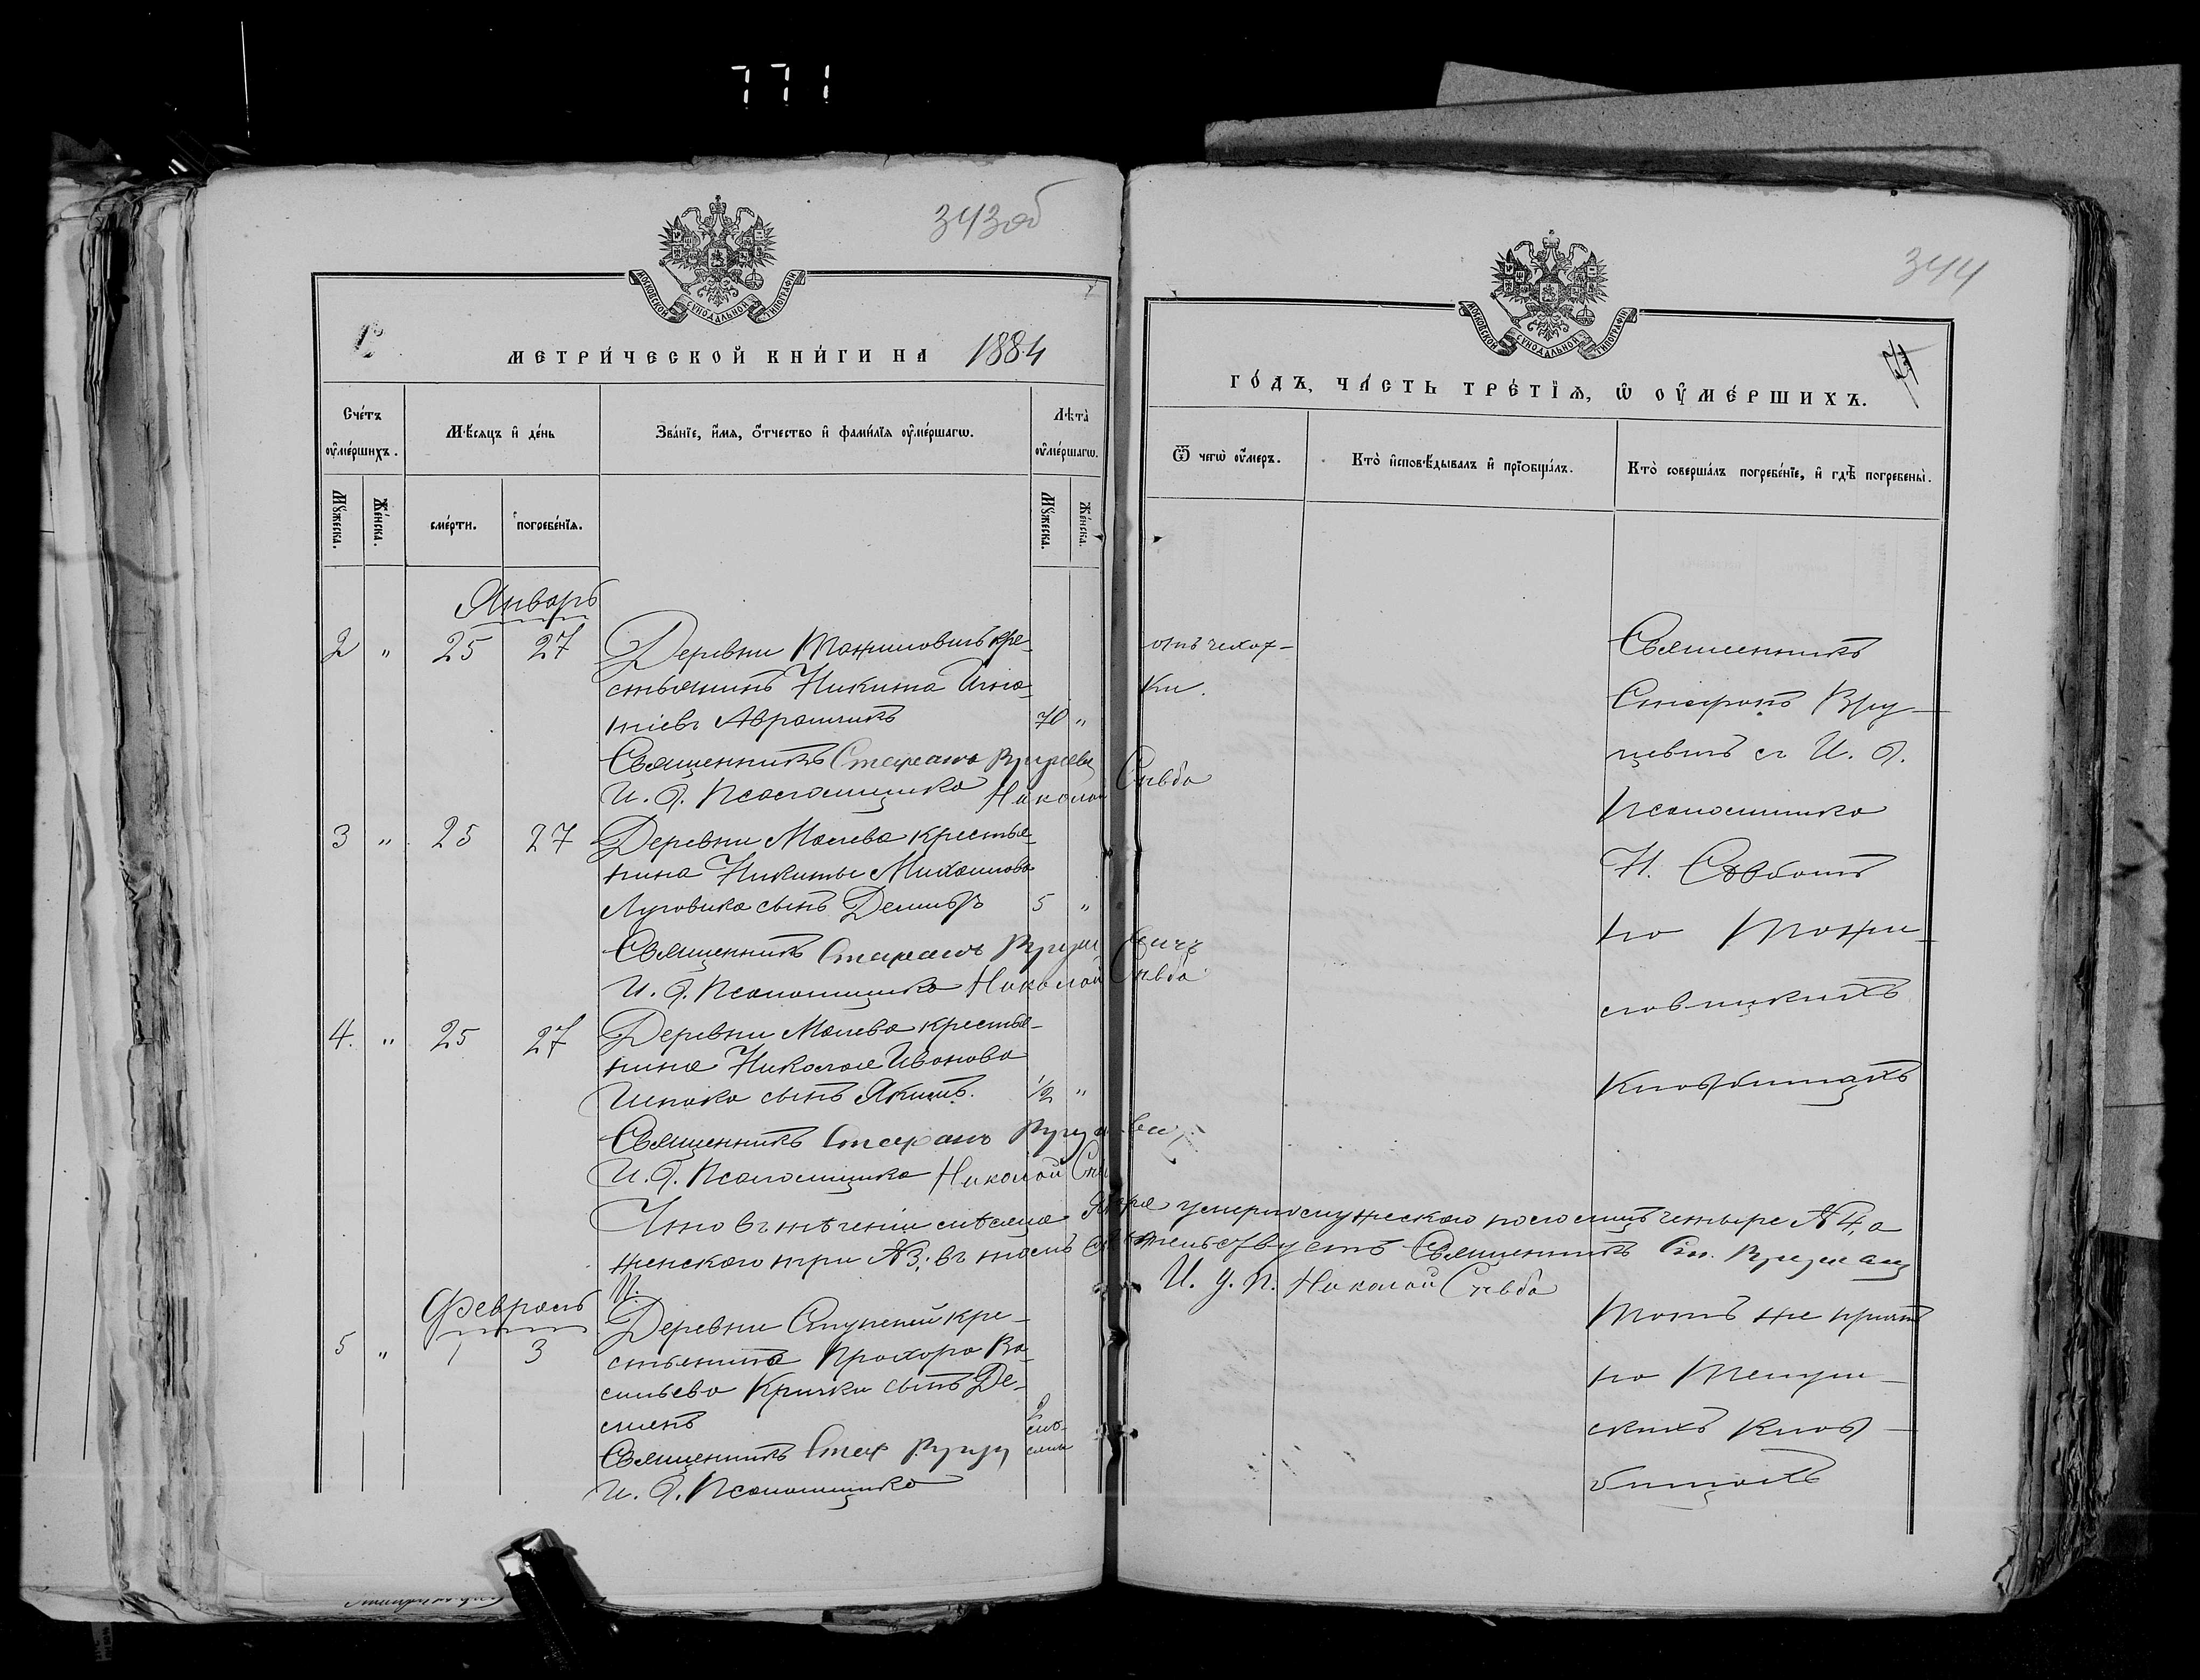 771
343об
МОСКОВСКОЙ СѴНОДАЛЬНОЙ ТИПОГРАФІИ
МЕТРИ́ЧЕСКОЙ КНИ́ГИ НА 1884
Сче́тъ ᲂу҆ме́ршихъ.
Мѣ́сяцъ и҆ де́нь
Зва́нїе, и҆́мя, ѻ҆́тчество и҆ фами́лїя ᲂу҆ме́ршагѡ.
Лѣ̑та̀ ᲂу҆ме́ршагѡ.
Мꙋ́жеска.
Же́нска.
сме́рти.
погребе́нїя.
Мꙋ́жеска.
Же́нска.
Январь
2 " 25 27 Деревни Тонимовичъ кре-
стьянинъ Никита Игна-
тіевъ Аврамчикъ 70 "
Священникъ Стефанъ Вруцевич
И. д. Псаломщика Николай Съвба
3 " 25 27 Деревни Малева крестья-
нина Никиты Михаилова
Луговика сынъ Демидъ 5 "
Священникъ Стефанъ Вруцевичъ
И. д. Псаломщика Николай Съвба
4. " 25 27 Деревни Малева крестья-
нина Николая Иванова
Шпака сынъ Якимъ. 1/2 "
Священникъ Стефанъ Вруцевич
И. д. Псаломщика Николай
Итого въ теченіи мѣсяца Янвря умерло мужескаго пола лицъ четыре №4, а
женскаго три №3; въ томъ свидѣтельствуетъ Священникъ Ст. Вруцевич
И. д. п. Николай Съвба
Февраль
5 " 1 3 Деревни Ступеней кре-
стьянина Прохора Ва-
сильева Кричка сынъ Де-
менъ
Священникъ Стеф Вруц
И. д. Псаломщика
344
МОСКОВСКОЙ СѴНОДАЛЬНОЙ ТИПОГРАФІИ
ГО́ДЪ, ЧА́СТЬ ТРЕ́ТЇѦ, Ѡ҆ ОУ҆МЕ́РШИХЪ.
Ѿ чегѡ̀ ᲂу҆́мерх.
Кто̀ и҆сповѣ́дывалъ и҆ прїобща́лъ.
Кто̀ соверша́лъ погребе́нїе, и҆ гдѣ̀ погребены̀.
отъ чехот-
ки.
Священникъ
Стефанъ Вру-
цевичъ съ И. д.
Псаломщика
Н. Съвбою
на Тони-
ловицкихъ
Кладбищахъ
Тотъ же причтъ
на
скихъ Клад-
бищахъ